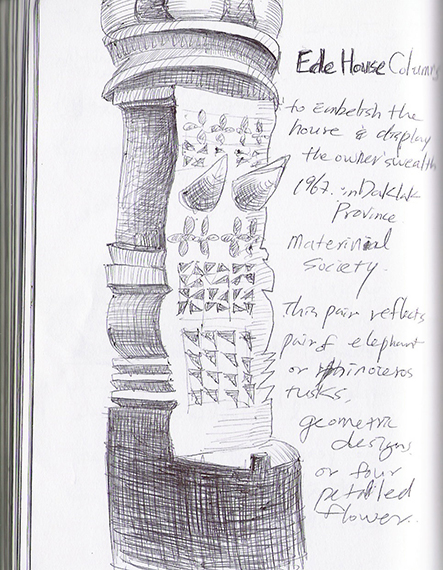 Ede House Columns
to Embelish the
house & display
the owner's wealth
1967. in Daklak
Province
Materinial
Society.
This pair reflects
pair of elephant
or rhinoceros
tusks,
geometric
designs
or four
petalled
flower.